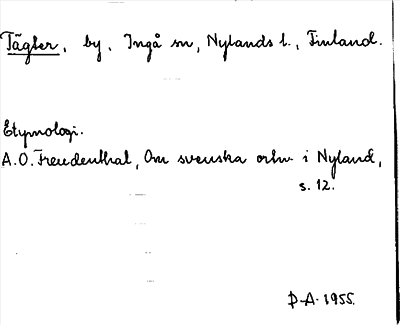 Tägter, by, Ingå sn, Nylands l., Finland.
Etymologi.
A.O. Freudenthal, Om svenska ortn. i Nyland,
s. 12.
P-A. 1955.